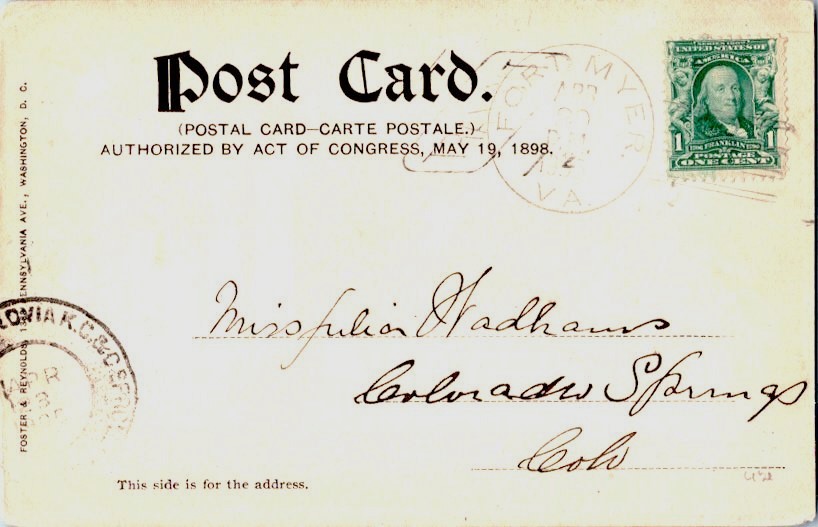 Post Card.
(POSTAL CARD—CARTE POSTALE.)
AUTHORIZED BY ACT OF CONGRESS, MAY 19, 1898.
FORT MYER,
VA.
SERIES 1902
UNITED STATES OF
AMERICA
1 FRANKLIN 1
POSTAGE
ONE CENT
FOSTER & REYNOLDS, PENNSYLVANIA AVE., WASHINGTON, D. C.
Miss Julia Wadhams
Colorado Springs
Colo
K.C.&C.
This side is for the address.